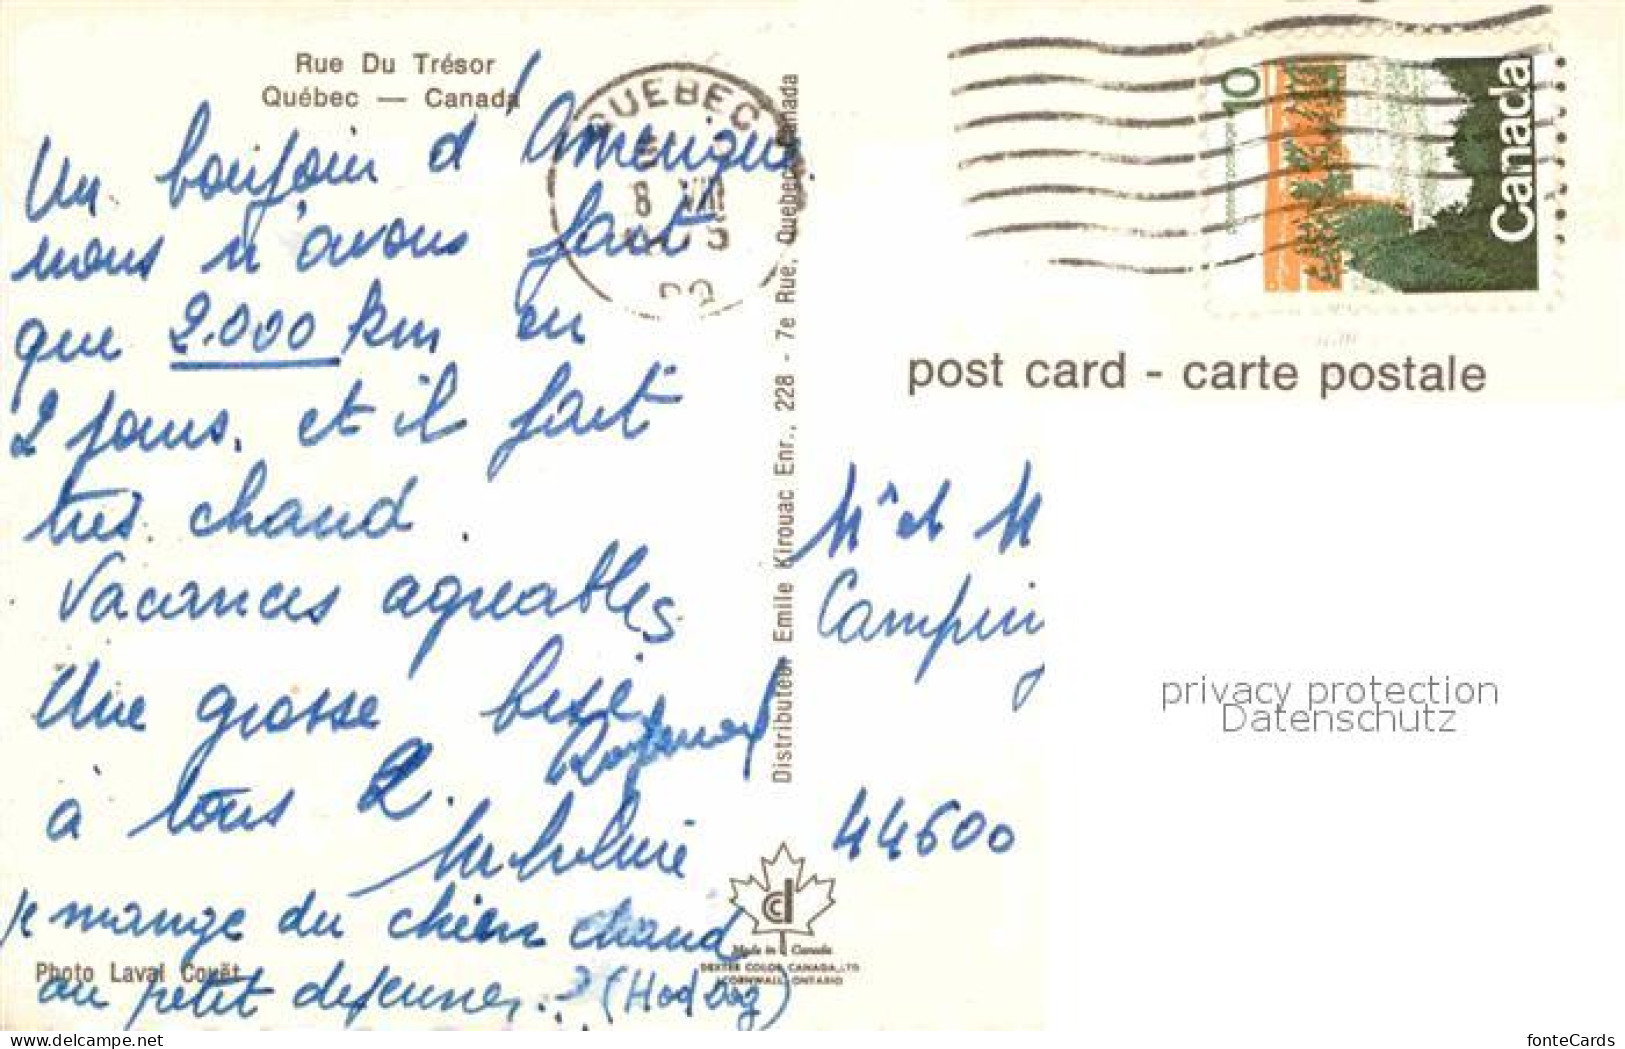 Rue Du Trésor
Québec — Canada
Un bonjour d'Amérique
nous n'avons fait
que 2.000 km en
2 jours. et il fait
très chaud.
Vacances agréables
Une grosse bise
à tous 2.
je mange du chien chaud
au petit dejeuner..? (Hod Dog)
Photo Laval Couët
QUEBEC
8 VIII
PQ
Distributeur Emile Kirouac Enr., 228 - 7e Rue, Quebec, Canada
Made in Canada
DEXTER COLOR CANADA, LTD
CORNWALL, ONTARIO
10
Canada
post card - carte postale
Mr et M
Camping
44600
privacy protection
Datenschutz
www.delcampe.net
fonteCards